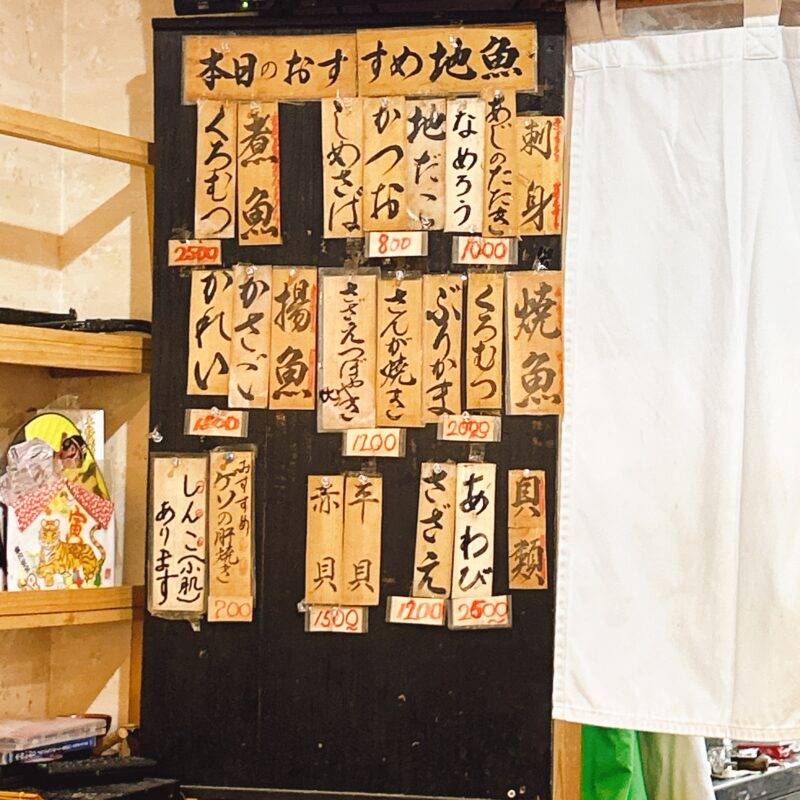 本日のおすすめ地魚
刺身
あじのたたき
なめろう
1000
地だこ
かつお
800
しめさば
煮魚
くろむつ
2500
焼魚
くろむつ
ぶりかま
2000
さんが焼き
さざえつぼやき
1200
揚魚
かさご
かれい
貝類
あわび
2500
さざえ
1200
平貝
赤貝
1500
おすすめ
ゲソの肝焼き
しんこ(小肌)
あります
寅